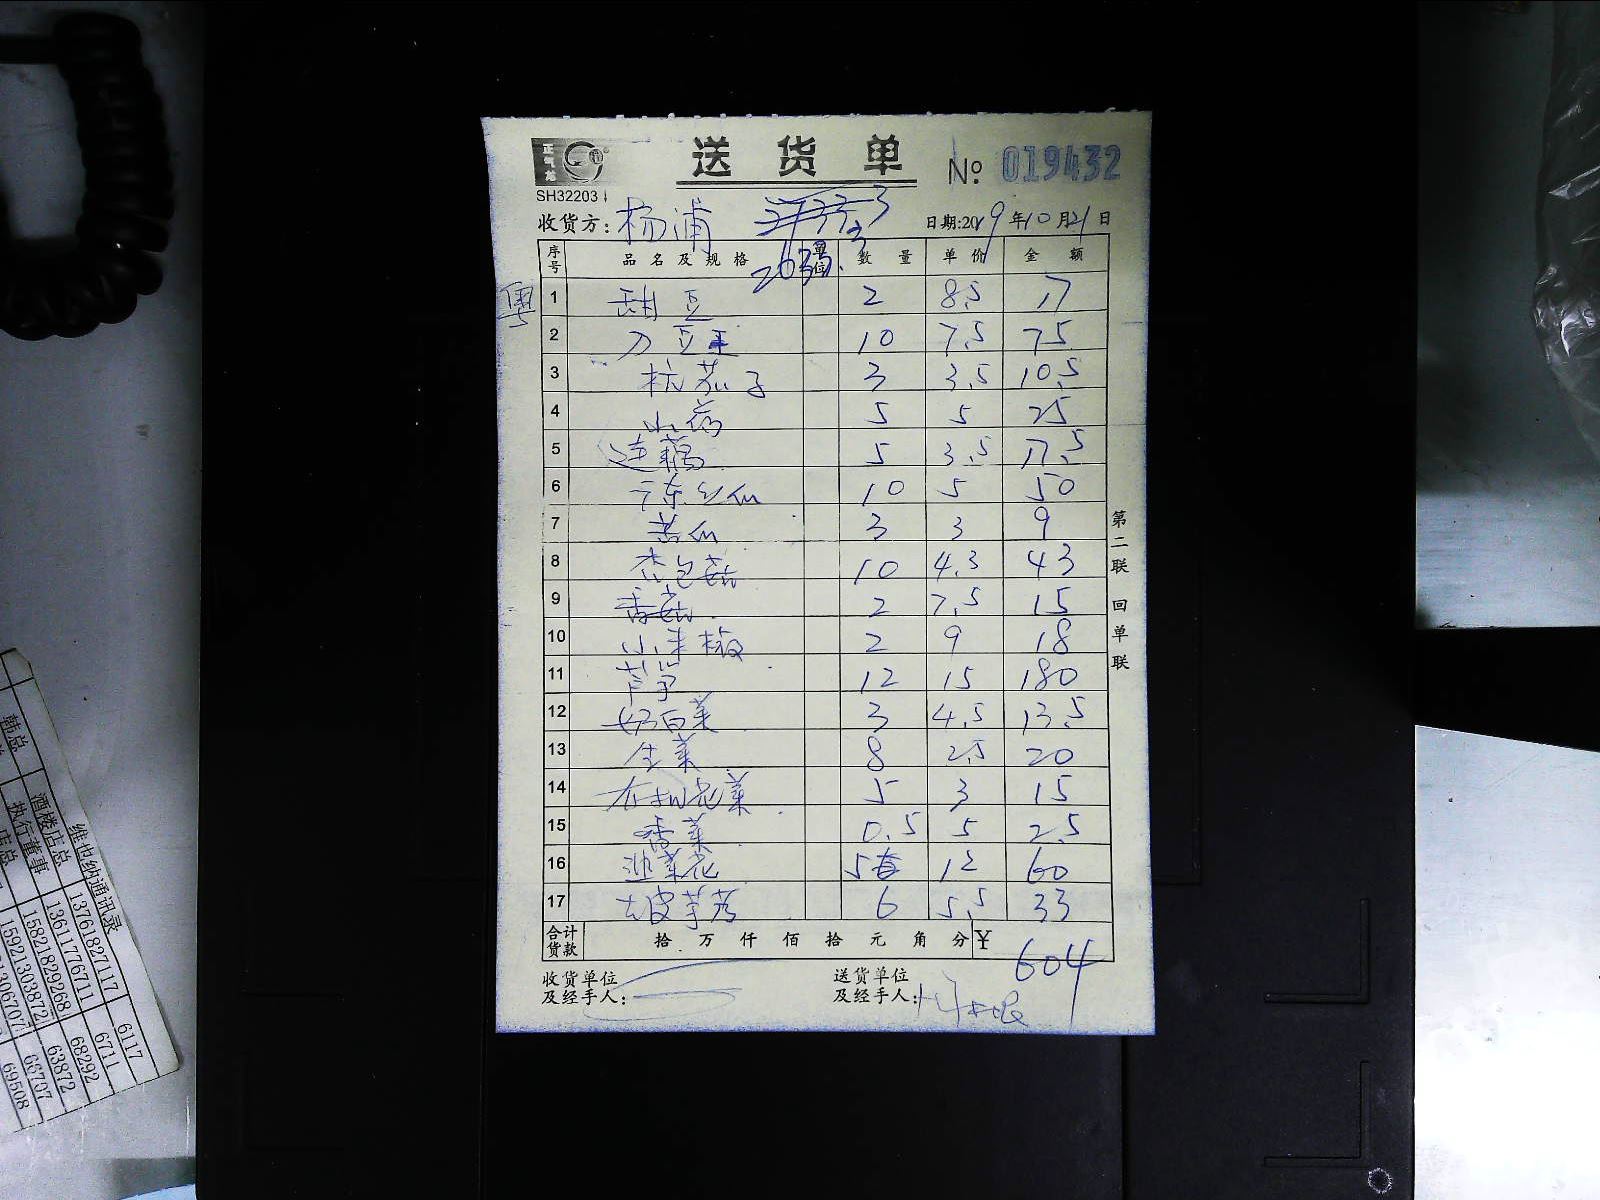 正气龙
送货单 № 019432
SH32203
收货方: 杨浦 日期:2019年10月21日
2633.3
序号 品名及规格 单位 数量 单价 金额
粤
1 甜豆 2 8.5 17
2 刀豆王 10 7.5 75
3 杭茄子 3 3.5 10.5
4 山药 5 5 25
5 连藕 5 3.5 17.5
6 广东丝瓜 10 5 50
7 苦瓜 3 3 9
8 杏包菇 10 4.3 43
9 香菇 2 7.5 15
10 小米椒 2 9 18
11 芦笋 12 15 180
12 奶白菜 3 4.5 13.5
13 生菜 8 2.5 20
14 有机花菜 5 3 15
15 香菜 0.5 5 2.5
16 韭菜花 5 12 60
17 去皮芋艿 6 5.5 33
合计货款 拾万仟佰拾元角分 ¥ 604
收货单位及经手人:
送货单位及经手人:
第二联 回单联
维也纳通讯录
韩总 13761827117 6117
酒楼店总 13611776711 6711
执行董事 15821829268 68292
店总 15921303872 63872
66707
69508